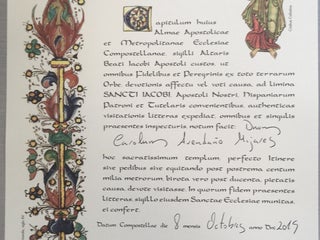 Capitulum huius
Almae Apostolicae
et Metropolitanae Ecclesiae
Compostellanae, sigilli Altaris
Beati Iacobi Apostoli custos, ut
omnibus Fidelibus et Peregrinis ex toto terrarum
Orbe, devotionis affectu vel voti causa, ad limina
SANCTI IACOBI, Apostoli Nostri, Hispaniarum
Patroni et Tutelaris convenientibus, authenticas
visitationis litteras expediat, omnibus et singulis
praesentes inspecturis, notum facit: Dnam
Carolum Avendaño Mijares
hoc sacratissimum templum, perfecto Itinere
sive pedibus sive equitando post postrema centum
milia metrorum, birota vero post ducenta, pietatis
causa, devote visitasse. In quorum fidem praesentes
litteras, sigillo eiusdem Sanctae Ecclesiae munitas,
ei confert.
Datum Compostellae die 8 mensis Octobris anno Dni 2019